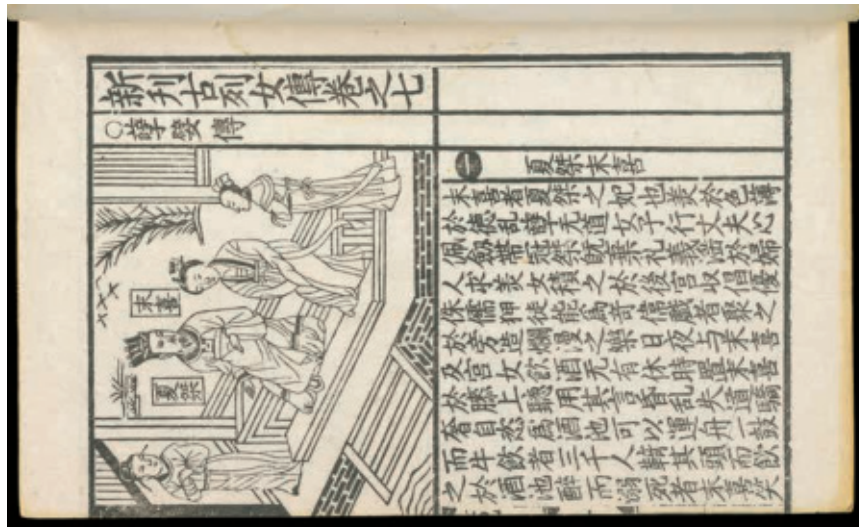 新刊古列女傳卷之七
○孽嬖傳
末喜
夏桀
一 夏桀末喜
末喜者夏桀之妃也美於色薄
於德乱孽无道女子行丈夫心
佩劒帶冠桀既棄礼義滛於婦
人求美女積之於後宮收倡優
侏儒狎徒能爲奇偉戲者聚之
於旁造爛漫之樂日夜与末喜
及宮女飲酒无有休時置末喜
於膝上聽用其言昏乱失道驕
奢自恣爲酒池可以運舟一鼓
而牛飲者三千人䩭其頭而飲
之於酒池醉而溺死者末喜笑